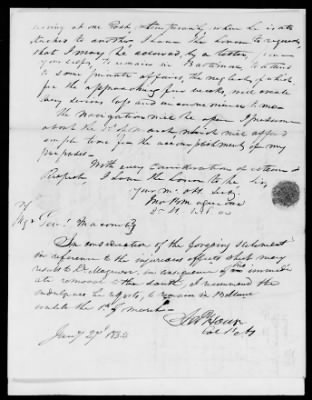 serving at one Post, & temporarily, when he is att
ached to another, I have the honor to request,
that I may be allowed, by a letter, from
yourself, to remain in Baltimore to attend
to some private affairs, the neglect of which
for the approaching few weeks, will create
very serious loss and inconvenience to me.
The navigation will be open I presume
about the 1st of March, which will afford
ample time for the accomplishment of my
purposes.
With every consideration of esteem &
Respect, I have the honor to be, Sir,
Your mo. obt. Servt.
To
In consideration of the forgoing statement
in reference to the injurious effects which may
result to Dr. in consequence of his immedi
ate removal to the South, I recommend the
indulgence he requests, to remain in Baltimore
until the 1st of March.
Jany 29